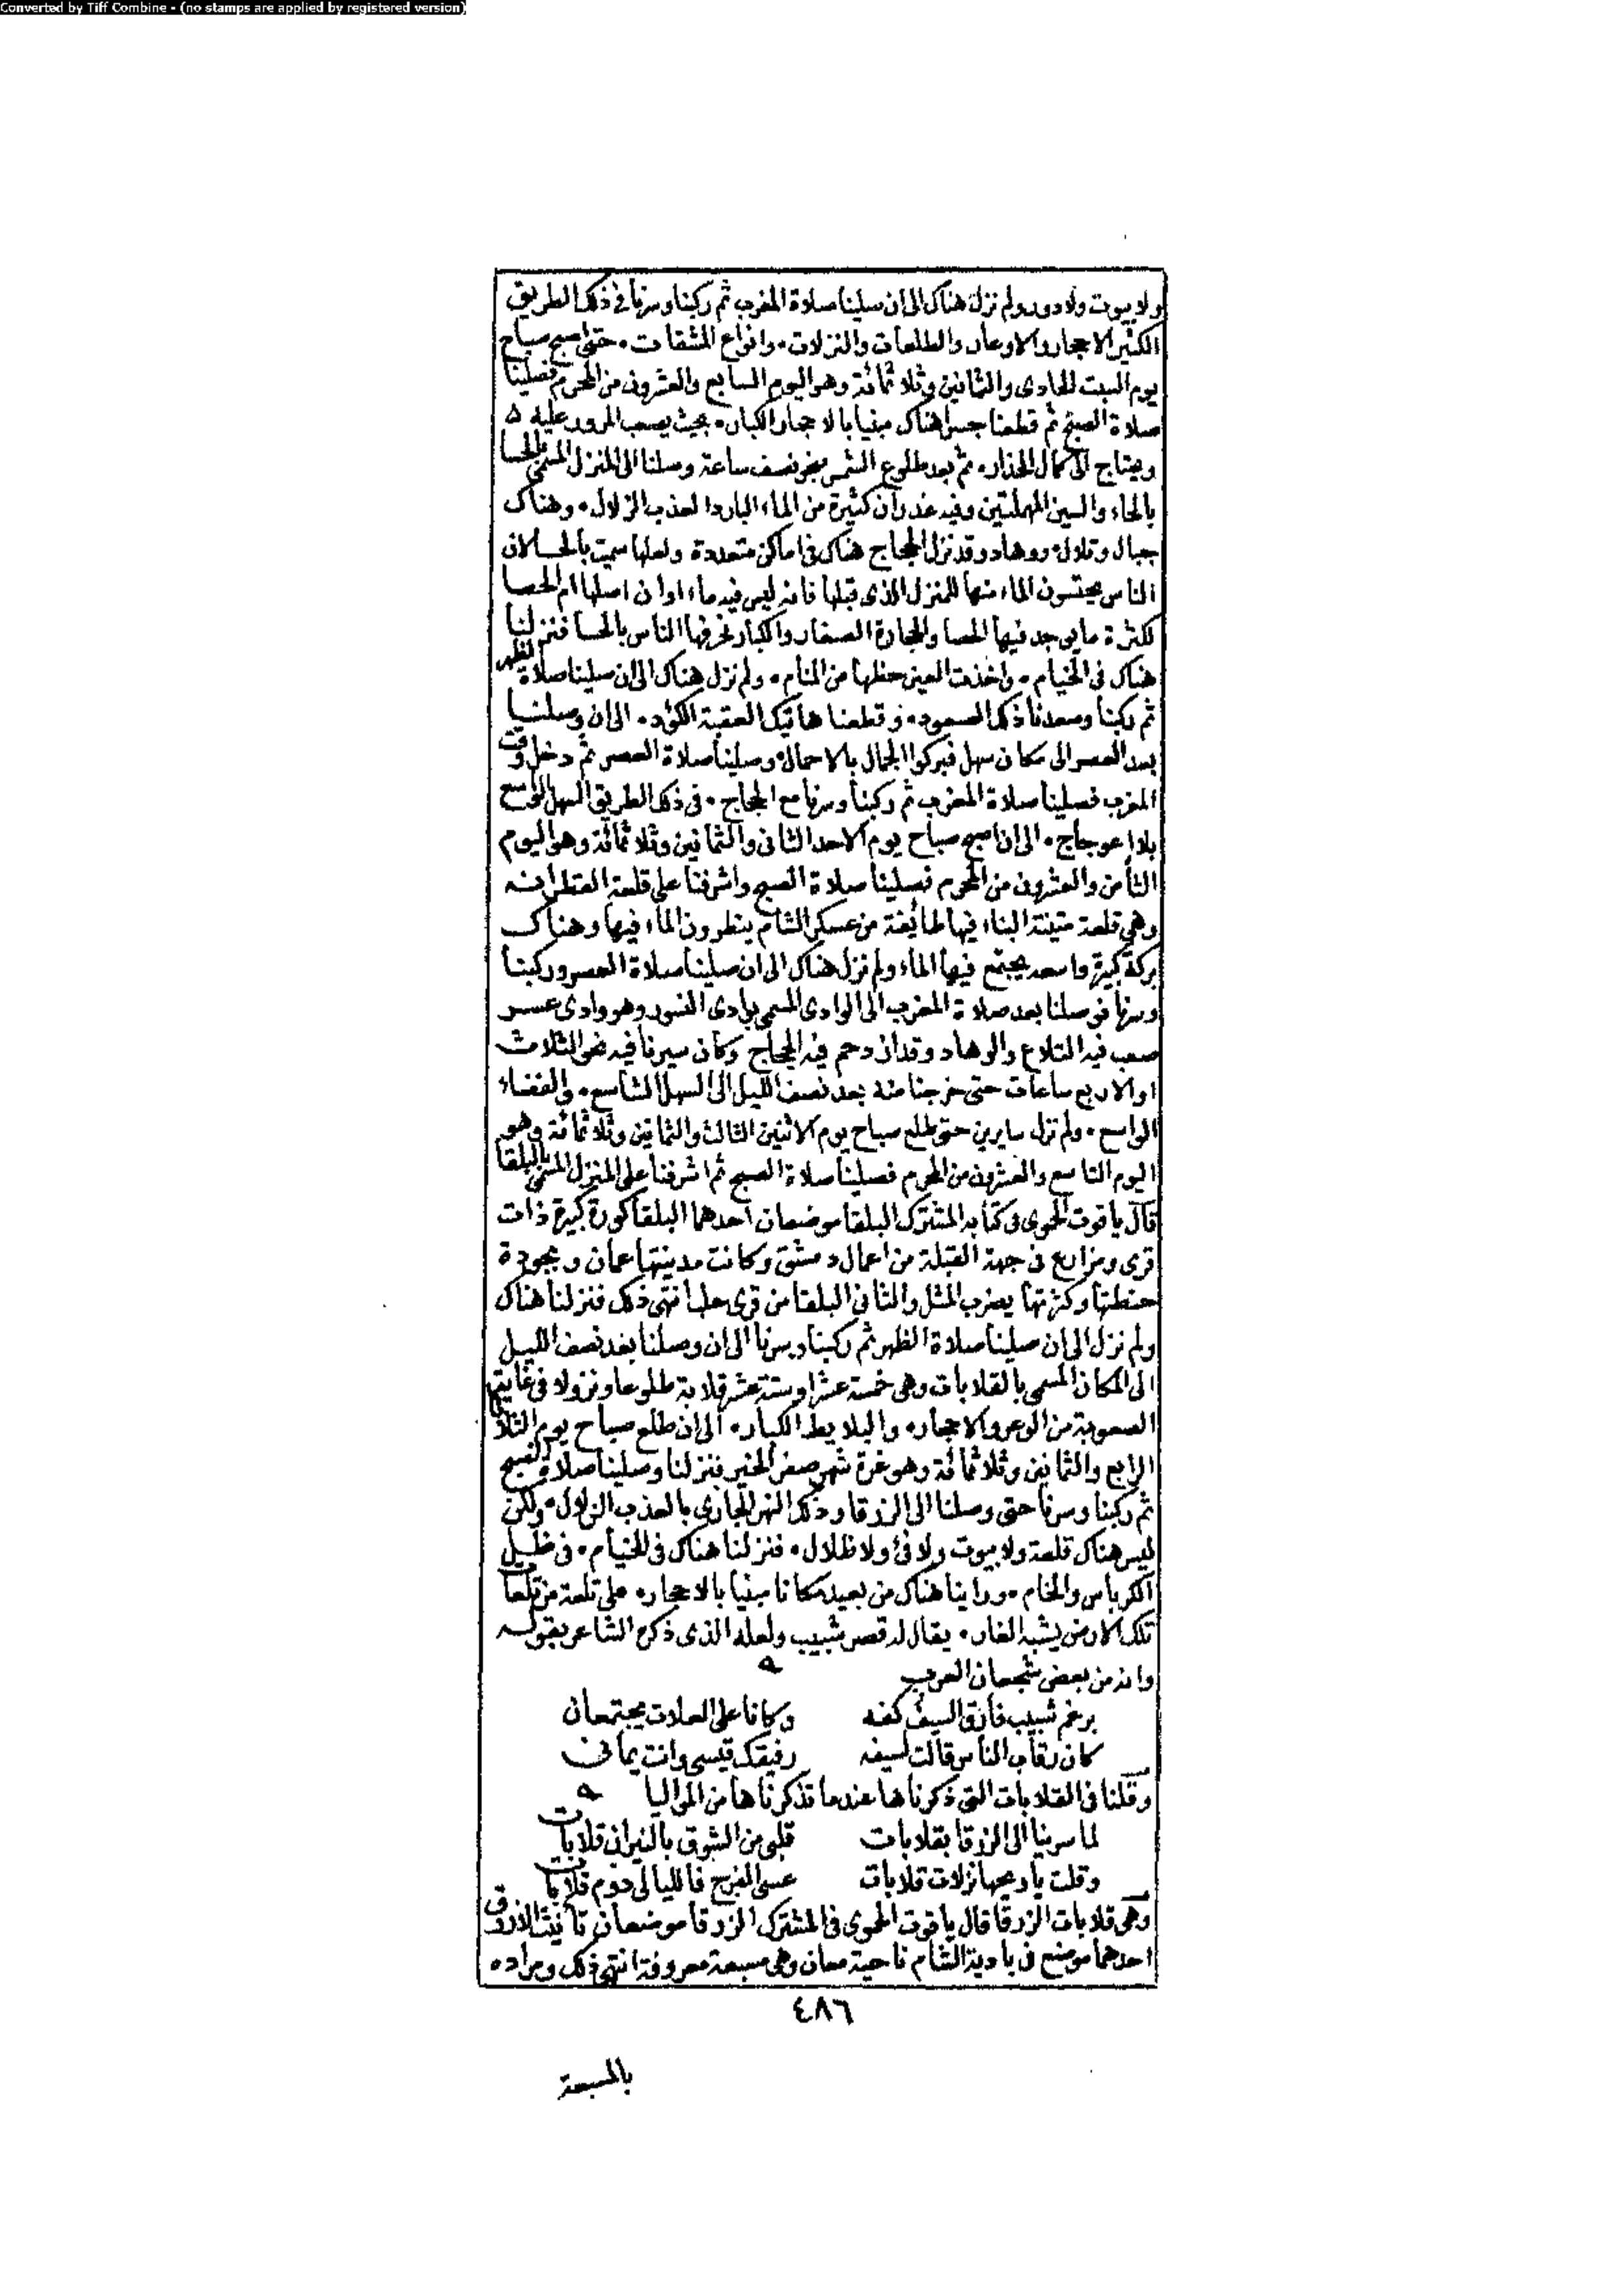 Converted by Tiff Combine - (no stamps are applied by registered version)
ولا بيوت ولا دور ولم نزل هناك الى ان صلينا صلاة المغرب ثم ركبنا وسرنا في ذلك الطريق
الكثير الاحجار والاوعار والطلعات والنزلات. وانواع المشقات. حتى اصبح صباح
يوم السبت الحادى والثمانين وثلاثمائة وهو اليوم السابع والعشرون من المحرم فصلينا
صلاة الصبح ثم قطعنا جسرا هناك مبنيا بالاحجار الكبار. بحيث يصعب المرور عليه
ويحتاج الى كمال الحذار. ثم بعد طلوع الشمس بنحو نصف ساعة وصلنا الى المنزل المسمى بالحسا
بالحاء والسين المهملتين وفيه غدران كثيرة من الماء البارد العذب الزلال. وهناك
جبال وتلال ووهاد وقد نزل الحجاج هناك فى اماكن متعددة ولعلها سميت بالحسا لان
الناس يحتسون الماء منها للمنزل الذى قبلها فانه ليس فيه ماء او ان اصلها ام الحصا
لكثرة ما يوجد فيها الحصا والحجارة الصغار والكبار فحرفها الناس بالحسا فنزلنا
هناك فى الخيام. واخذت العين حظها من المنام. ولم نزل هناك الى ان صلينا صلاة الظهر
ثم ركبنا وصعدنا ذلك الصعود. وقطعنا هاتيك العقبة الكؤد. الى ان وصلنا
بعد العصر الى مكان سهل فبركوا الجمال بالاحمال وصلينا صلاة العصر ثم دخل وقت
المغرب فصلينا صلاة المغرب ثم ركبنا وسرنا مع الحجاج. فى ذلك الطريق السهل الواسع
بلا اعوجاج. الى ان اصبح صباح يوم الاحد الثانى والثمانين وثلاثمائة وهو اليوم
الثامن والعشرون من المحرم فصلينا صلاة الصبح واشرفنا على قلعة القطرانه
وهى قلعة متينة البناء فيها طائفة من عسكر الشام ينطرون الماء فيها وهناك
بركة كبيرة واسعه يجتمع فيها الماء ولم نزل هناك الى ان صلينا صلاة العصر وركبنا
وسرنا فوصلنا بعد صلاة المغرب الى الوادى المسمى بوادى النسور وهو وادى عسر
صعب فيه التلاع والوهاد وقد ازدحم فيه الحجاج وكان سيرنا فيه نحو الثلاث
او الاربع ساعات حتى خرجنا منه بعد نصف الليل الى السهل الشاسع. والفضاء
الواسع. ولم نزل سايرين حتى طلع صباح يوم الاثنين الثالث والثمانين وثلاثمائة وهو
اليوم التاسع والعشرون من المحرم فصلينا صلاة الصبح ثم اشرفنا على المنزل المسمى بالبلقا
قال ياقوت الحموى فى كتابه المشترك البلقا موضعان احدهما البلقا كورة كبيرة ذات
قرى ومزارع فى جهة القبلة من اعمال دمشق وكانت مدينتها عمان وبجودة
حنطتها وكثرتها يضرب المثل والثانى البلقا من قرى حلب انتهى ذلك فنزلنا هناك
ولم نزل الى ان صلينا صلاة الظهر ثم ركبنا وسرنا الى ان وصلنا بعد نصف الليل
الى المكان المسمى بالقلابات وهى خمسة عشر او ستة عشر قلابة طلوعا ونزولا فى غاية
الصعوبة من الوعر والاحجار. والبلايط الكبار. الى ان طلع صباح يوم الثلاثا
الرابع والثمانين وثلاثمائة وهو غرة شهر صفر الخير فنزلنا وصلينا صلاة الصبح
ثم ركبنا وسرنا حتى وصلنا الى الزرقا وذلك النهر الجارى بالعذب الزلال. ولكن
ليس هناك قلعة ولا بيوت ولا فئ ولا ظلال. فنزلنا هناك فى الخيام. فى ظل
الكرباس والخام. وراينا هناك من بعيد مكانا مبنيا بالاحجار. على تلعة من تلعات
تلك الارض يشبه الغار. يقال له قصر شبيب ولعله الذى ذكره الشاعر بقوله
وانه من بعض شجعان العرب
برغم شبيب فارق السيف كفه وكانا على العلات يجتمعان
كان رقاب الناس قالت لسيفه رفيقك قيسى وانت يمانى
وقلنا فى القلابات التى ذكرناها عندما تذكرناها من المواليا
لما سرينا الى الزرقا بقلابات قلبى من الشوق بالنيران قلابات
وقلت يا ربحها نزلات قلابات عسى الفرج فالليالى دوم قلابات
وهى قلابات الزرقا قال ياقوت الحموى فى المشترك الزرقا موضعان تأنيث الازرق
احدهما موضع فى بادية الشام ناحية معان وهى مسبعة معروفة انتهى ذلك ومراده
٤٨٦
بالمسبعة